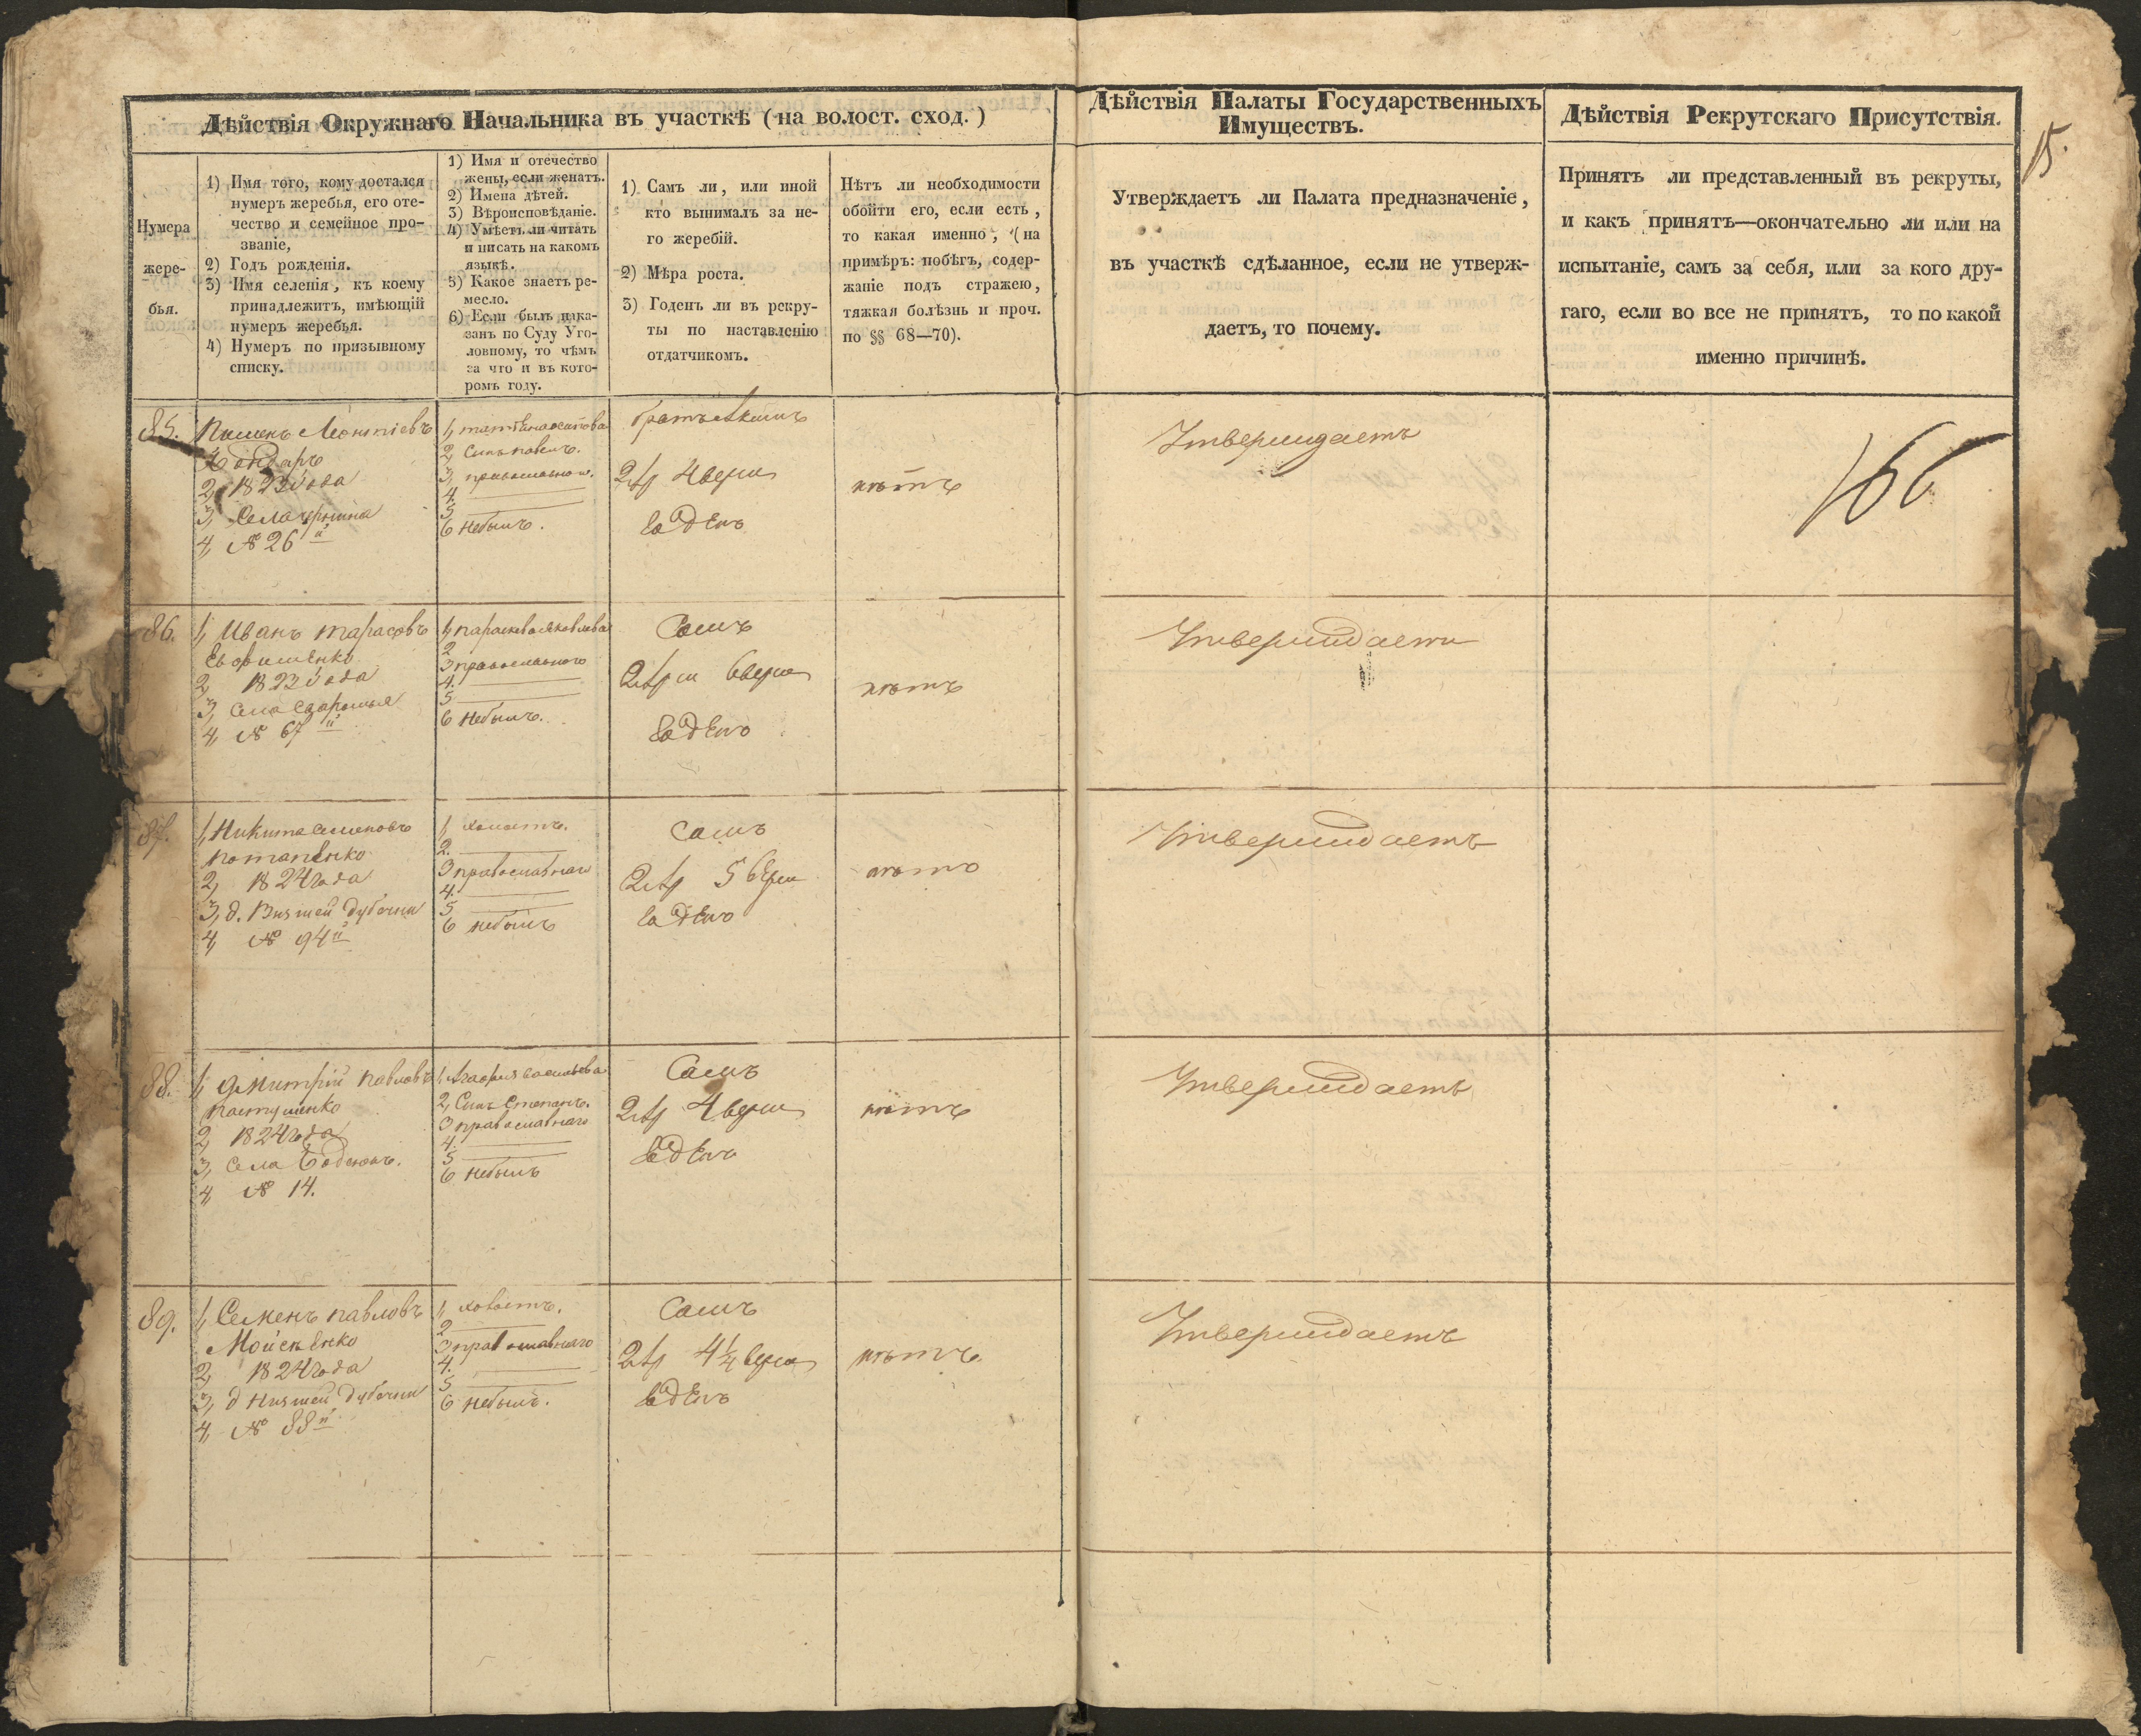 Дѣйствія Окружнаго Начальника въ участкѣ (на волост. сход.)
Дѣйствія Палаты Государственныхъ
Имуществъ.
Дѣйствія Рекрутскаго Присутствія.
15.
Нумера
жере-
бья.
1) Имя того, кому достался
нумеръ жеребья, его оте-
чество и семейное про-
званіе,
2) Годъ рожденія.
3) Имя селенія, къ коему
принадлежитъ, имѣющій
нумеръ жеребья.
4) Нумеръ по призывному
списку.
1) Имя и отечество
жены, если женатъ.
2) Имена дѣтей.
3) Вѣроисповѣданіе.
4) Умѣетъ ли читать
и писать на какомъ
языкѣ.
5) Какое знаетъ ре-
месло.
6) Если былъ нака-
занъ по Суду Уго-
ловному, то чѣмъ
за что и въ кото-
ромъ году.
1) Самъ ли, или иной
кто вынималъ за не-
го жеребій.
2) Мѣра роста.
3) Годенъ ли въ рекру-
ты по наставленію
отдатчикомъ.
Нѣтъ ли необходимости
обойти его, если есть,
то какая именно, (на
примѣръ: побѣгъ, содер-
жаніе подъ стражею,
тяжкая болѣзнь и проч.
по §§ 68—70).
Утверждаетъ ли Палата предназначеніе,
въ участкѣ сдѣланное, если не утверж-
даетъ, то почему.
Принятъ ли представленный въ рекруты,
и какъ принятъ—окончательно ли или на
испытаніе, самъ за себя, или за кого дру-
гаго, если во все не принятъ, то по какой
именно причинѣ.
85.
Пименъ Леонтіевъ
Бондарь
2, 1823 года
3, Села
4, № 26й
1, татіана осипова
2, Сынъ павелъ.
3, православнаго.
4.
5
6 небылъ.
братъ
2 ар 4 верш
годенъ
нѣтъ
Утверждаетъ
166
86.
1, Иванъ тарасовъ
Евфименко
2, 1823 года
3, села
4, № 67й
1, параскева яковлева
2
3 православнаго
4.
5
6 небылъ.
Самъ
2 ар 6 верш
годенъ
нѣтъ
Утверждаетъ
87.
1, Никита семеновъ
потапенко
2, 1824 года
3, д. Визшей дубечни
4, № 94й
1, холостъ.
2.
3 православнаго
4.
5
6 небылъ
самъ
2 ар 5 верш
годенъ
нѣтъ
Утверждаетъ
88.
1, Дмитрій павловъ
пастушенко
2, 1824 года
3, села
4, № 14.
1, Агафія васильева
2, Сынъ Степанъ.
3 православнаго
4.
5
6 небылъ
Самъ
2 ар 4 верш
годенъ
нѣтъ
Утверждаетъ
89.
1, Семенъ павловъ
Мойсѣенко
2, 1824 года
3, д Низшей дубечни
4, № 88й
1, холостъ.
2
3 православнаго
4.
5
6 небылъ.
Самъ
2 ар 4¼ верш
годенъ
нѣтъ
Утверждаетъ